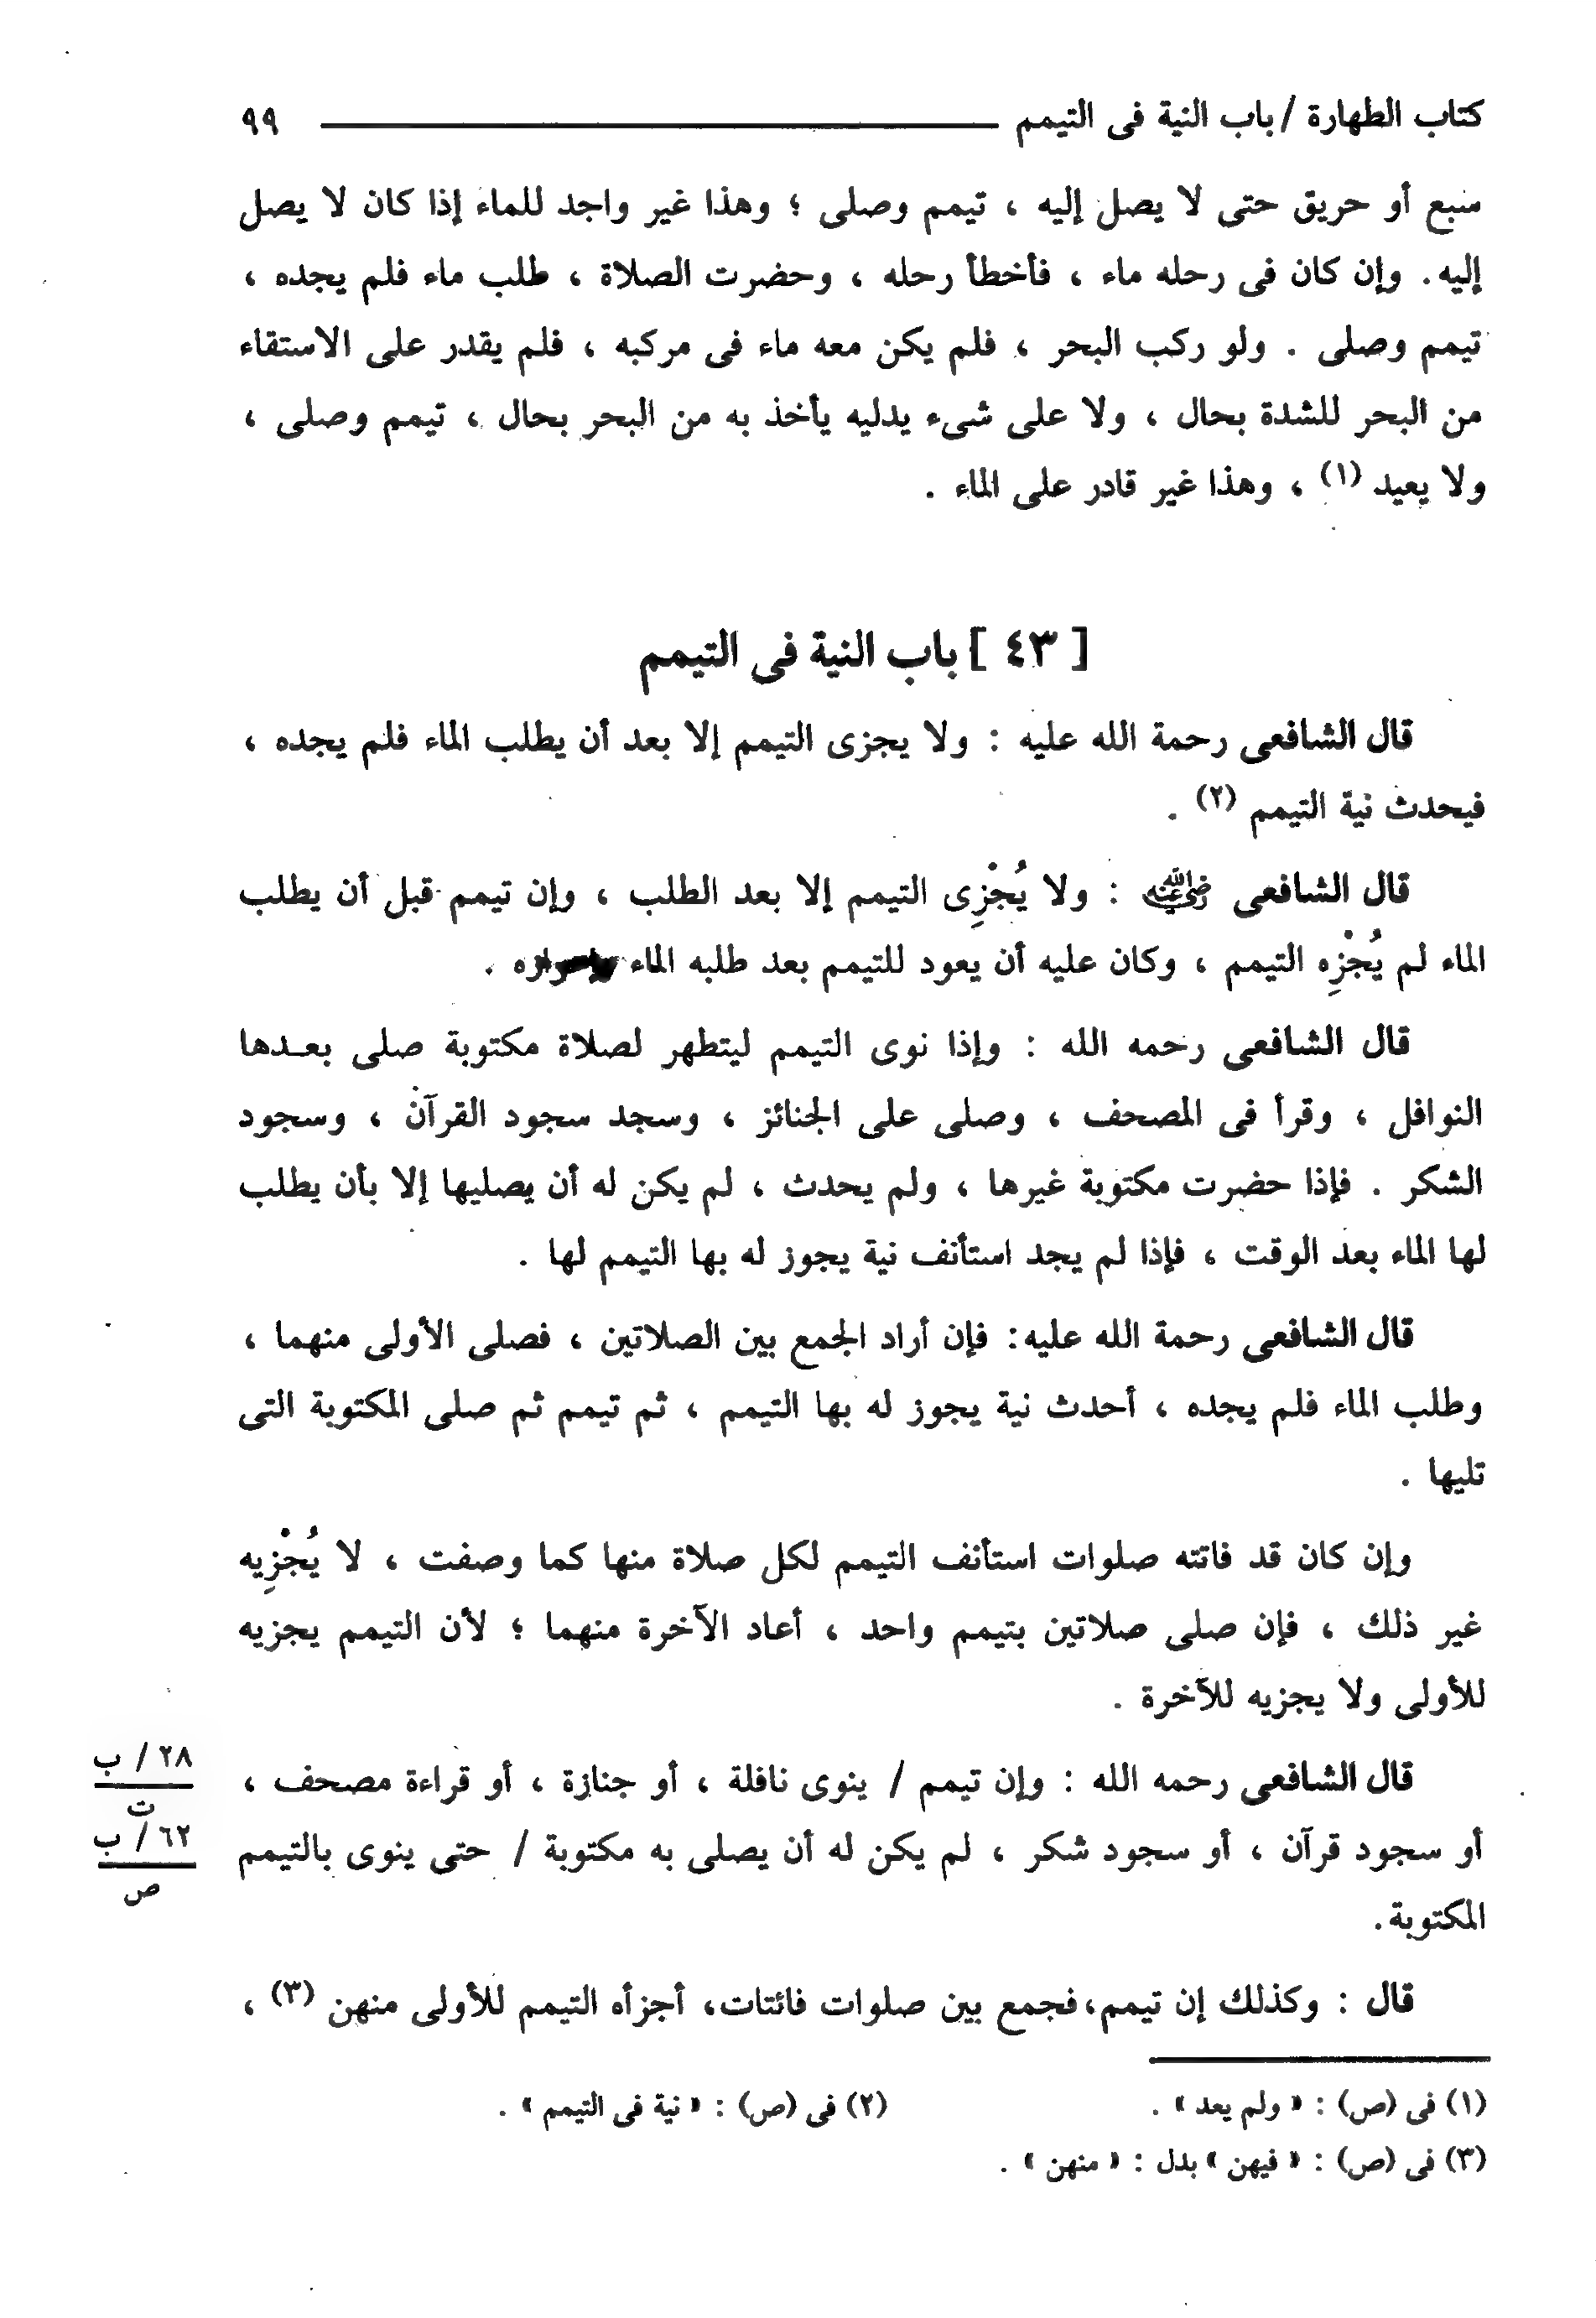 كتاب الطهارة / باب النية فى التيمم ٩٩
سبع أو حريق حتى لا يصل إليه ، تيمم وصلى ؛ وهذا غير واجد للماء إذا كان لا يصل
إليه . وإن كان فى رحله ماء ، فأخطأ رحله ، وحضرت الصلاة ، طلب ماء فلم يجده ،
تيمم وصلى . ولو ركب البحر ، فلم يكن معه ماء فى مركبه ، فلم يقدر على الاستقاء
من البحر للشدة بحال ، ولا على شىء يدليه يأخذ به من البحر بحال ، تيمم وصلى ،
ولا يعيد (١) ، وهذا غير قادر على الماء .
[ ٤٣ ] باب النية فى التيمم
قال الشافعى رحمة الله عليه : ولا يجزى التيمم إلا بعد أن يطلب الماء فلم يجده ،
فيحدث نية التيمم (٢) .
قال الشافعى رضي الله عنه : ولا يُجْزِى التيمم إلا بعد الطلب ، وإن تيمم قبل أن يطلب
الماء لم يُجْزِه التيمم ، وكان عليه أن يعود للتيمم بعد طلبه الماء .
قال الشافعى رحمه الله : وإذا نوى التيمم ليتطهر لصلاة مكتوبة صلى بعـدها
النوافل ، وقرأ فى المصحف ، وصلى على الجنائز ، وسجد سجود القرآن ، وسجود
الشكر . فإذا حضرت مكتوبة غيرها ، ولم يحدث ، لم يكن له أن يصليها إلا بأن يطلب
لها الماء بعد الوقت ، فإذا لم يجد استأنف نية يجوز له بها التيمم لها .
قال الشافعى رحمة الله عليه: فإن أراد الجمع بين الصلاتين ، فصلى الأولى منهما ،
وطلب الماء فلم يجده ، أحدث نية يجوز له بها التيمم ، ثم تيمم ثم صلى المكتوبة التى
تليها .
وإن كان قد فاتته صلوات استأنف التيمم لكل صلاة منها كما وصفت ، لا يُجْزِيه
غير ذلك ، فإن صلى صلاتين بتيمم واحد ، أعاد الآخرة منهما ؛ لأن التيمم يجزيه
للأولى ولا يجزيه للآخرة .
قال الشافعى رحمه الله : وإن تيمم / ينوى نافلة ، أو جنازة ، أو قراءة مصحف ،
٢٨ / ب
ت
أو سجود قرآن ، أو سجود شكر ، لم يكن له أن يصلى به مكتوبة / حتى ينوى بالتيمم
٦٢ / ب
ص
المكتوبة.
قال : وكذلك إن تيمم، فجمع بين صلوات فائتات، أجزأه التيمم للأولى منهن (٣) ،
(١) فى (ص) : « ولم يعد » . (٢) فى (ص) : « نية فى التيمم » .
(٣) فى (ص) : « فيهن » بدل : « منهن » .